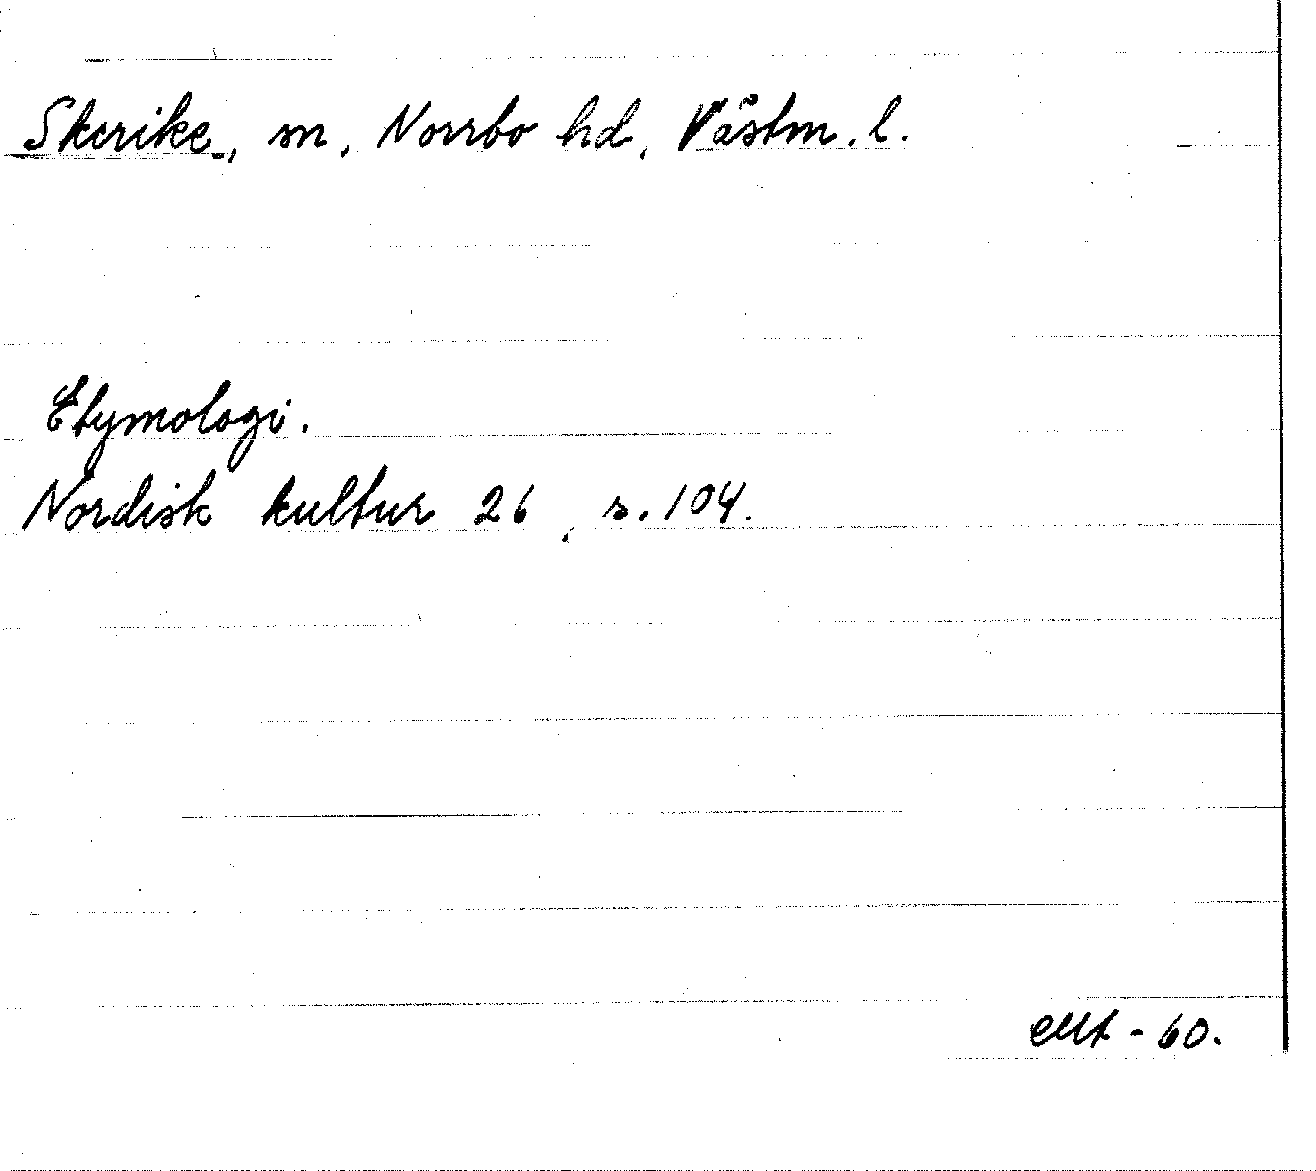 Skerike, m, Norrbo hd, Västm. l.
Etymologi.
Nordisk kultur 26, s. 104.
-60.